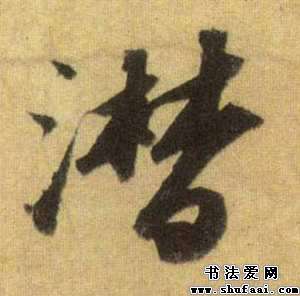 潜
书法爱网
www.shufaai.com